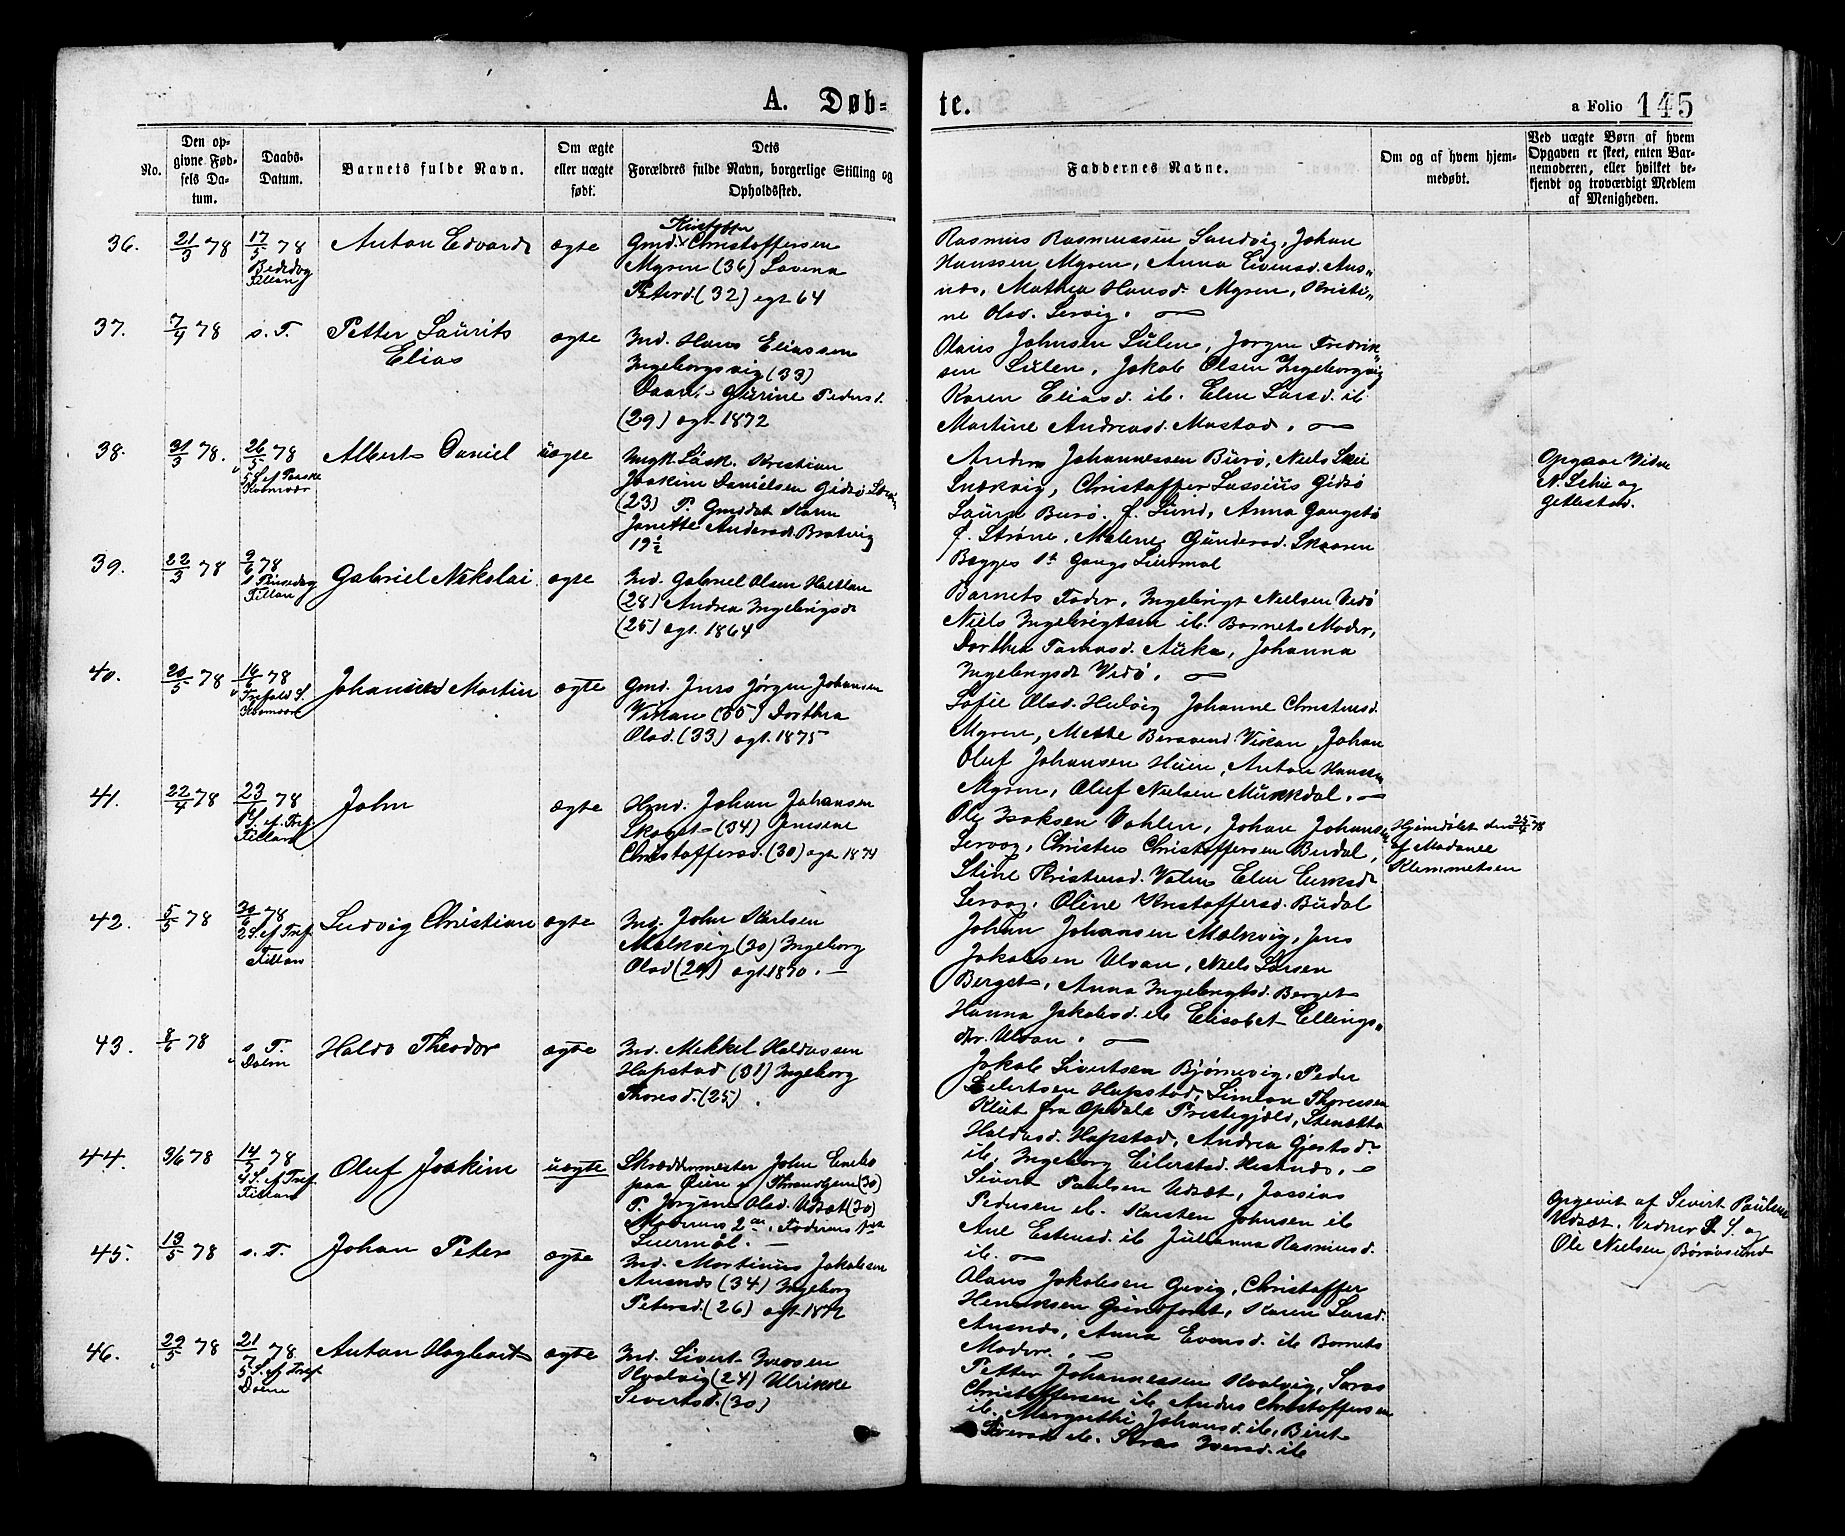 A. Døb-
te.
a Folio 145
No.
Den op-
givne Fød-
sels Da-
tum.
Daabs-
Datum.
Barnets fulde Navn.
Om ægte
eller uægte
født.
Dets
Forældres fulde Navn, borgerlige Stilling og
Opholdssted.
Faddernes Navne.
Om og af hvem hjem-
medøbt.
Ved uægte Børn af hvem
Opgaven er skeet, enten Bar-
nemoderen, eller hvilket be-
kjendt og troværdigt Medlem
af Menigheden.
36.
21/3 78
17/5 78
Bededag
Fillan
Anton Edvard
ægte
Gmd. Christoffersen
Myren (36) Lovena
Peterd. (32) egt 64
Rasmus Rasmussen Sandvig, Johan
Hanssen Myren, Anna Evensd. Aus-
næs, Mathea Hansd. Myren, Kristi-
ne Olsd. Servig.
37.
7/4 78
s. T.
Petter Laurits
Elias
ægte
Ind. Hans Eliassen
Ingeborgvig (33)
Gurine Pedersd.
(29) egt. 1872
Olaus Johnsen Sulen, Jørgen Fredrik-
sen Sulen, Jakob Olsen Ingeborgvig
Karen Eliasd. ib. Elen Larsd. ib
Martine Andreasd. Mastad.
38.
31/3 78.
26/5 78
5 S. ef Paaske
Kvenvær
Albert Daniel
uægte
Ungk. Kristian
Joakim Danielsen Gidsø
(23) P. Gmddat Karen
Janette Andersd. Bratvig
19 1/2
Anders Johannessen Burø, Niels Skei
Snekvig, Christoffer Lassius Gidsø
Laura Burø. f. Lund, Anna Gangstø
f. Strøne, Malene Gundersd. Skaaren
Begges 1st Gangs Leiermal
Opgave Vidne
N. Schie og
Getlestad.
39.
22/3 78
9/6 78
1 Pinsedag
Fillan
Gabriel Nikolai
ægte
Ind. Gabriel Olsen Hattlan
(28) Andrea Ingebrigsdr
(25) egt. 1864
Barnets Fader, Ingebrigt Nielsen Vedø
Niels Ingebrigtsen ib. Barnets Moder,
Dorthea Tomasd. Auka, Johanna
Ingebrigsdr Vedø.
40.
20/5 78
16/6 78
Trefold. S.
Kvenvær
Johannes Martin
ægte
Gmd. Jens Jørgen Johansen
Vikan (35) Dorthea
Olsd. (33) egt. 1875
Sofie Olsd. Helvig Johanne Christensd.
Myren, Mette Berntsend. Vikan, Johan
Oluf Johansen Heien, Anton Hanssen
Myren, Oluf Nielsen Munkdal.
41.
22/4 78
23/6 78
1 S. ef. Tref.
Fillan
John
ægte
Gmd. Johan Johansen
Skaget (34) Jensine
Christoffersd. (30) egt 1874
Ole Isaksen Vahlen, Johan Johansen
Servog, Christen Christoffersen Burdal,
Stine Kristensd. Valen Elen Eriksdr
Servog, Oline Kristoffersd. Budal
Hjemdøbt den 25/4 78
af Madame
Klemmetsen
42.
5/5 78
30/6 78
2 S. ef Tref.
Fillan
Ludvig Christian
ægte
Ind. John Karlsen
Malkvig (30) Ingeborg
Olsd (29) egt 1870.
Johan Johansen Malkvig, Jens
Jakobsen Ulvan, Niels Larsen
Berget, Anna Ingebrigtsd. Berget
Hanna Jakobsd. ib Elisabet Ellings-
dtr. Ulvan.
43.
8/6 78
s. T.
Dolm
Haldo Theodor
ægte
Ind. Mikkel Haldassen
Hapstad (31) Ingeborg
Thoresd. (25).
Jakob Sivertsen Bjørnevig, Peder
Eilertsen Hapstad, Simeon Thoressen
Klæt fra Opdals Prestegjæld, Stenetta
Haldasd. Hapstad, Andrea Gjertsdr
ib, Ingeborg Eilerstsd. Hestnæs.
44.
3/6 78
14/7 78
4 S. ef Tref.
Fillan
Oluf Joakim
uægte
Skræddermester John Enebo
paa Øien v/ Throndhjem (30)
P. Jørgine Olsd. Utsæt (30)
Moderens 2det, Faderens 1st
Leiermål.
Sivert Paulsen Utsæt, Jossias
Pedersen ib. Karsten Johnsen ib
Ane Estensd. ib Julianna Rasmusd.
ib.
Opgevit af Sivert Paulsen
Utsæt. Vidner P. S. og
Ole Nielsen Børøsund
45.
19/5 78
s. T.
Johan Peter
ægte
Ind. Martinus Jakobsen
Ausnæs (34) Ingeborg
Petersd. (26) egt. 1872
Olaus Jakobsen Gevig, Christoffer
Henriksen Grindfaret, Karen Larsd.
Ausnæs, Anna Evensd. ib Barnets
Moder.
46.
29/5 78
21/7 78
5 S. ef Tref
Dolm
Anton Hagbart
ægte
Ind. Sivert Iversen
Kvalvig (24) Ulrikke
Sivertsd. (30)
Petter Johannessen Kvalvig, Lars
Christoffersen ib Anders Christoffersen
ib. Margrethe Johansd. ib, Berit
Iversd ib. Iversd. ib